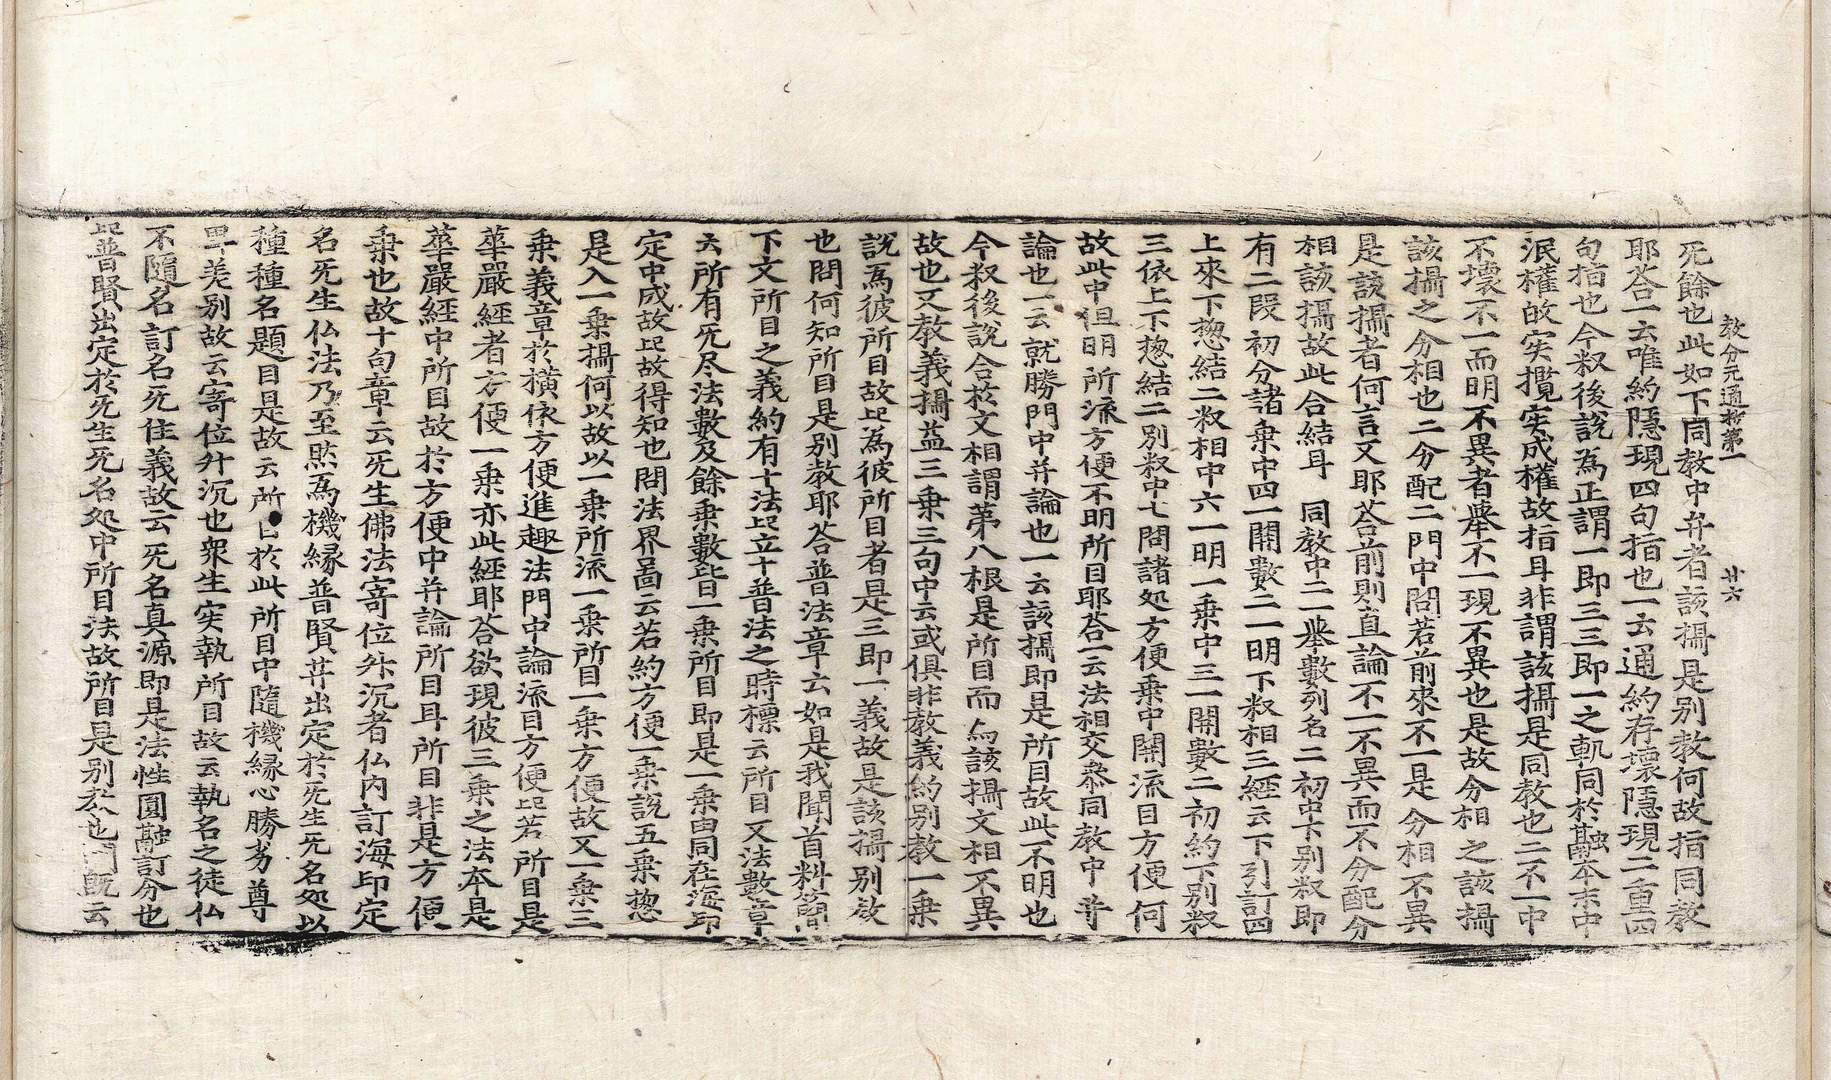 教分元通抄第一　廿六
无餘也此如下同教中弁者該攝是别教何故指同教
耶荅一云唯約隱現四句指也一云通約存壞隱現二重四
句指也今叔後說為正謂一即三三即一之軌同於融本末中
泯權故実攬実成權故指耳非謂該攝是同教也二不一中
不壞不一而明不異者舉不一現不異也是故分相之該攝
該攝之分相也二分配二門中問若前來不一是分相不異
是該攝者何言又耶荅前則直論不一不異而不分配分
相該攝故此合結耳　同教中二一舉數列名二初中下别叔即
有二段初分諸乗中四一開數二一明下叔相三經云下引訂四
上來下惣結二叔相中六一明一乗中三一開數二初約下别叔
三依上下惣結二别叔中七問諸処方便乗中開流目方便何
故此中但明所流方便不明所目耶荅一云法相交叅同教中弁
論也一云就勝門中并論也一云該攝即是所目故此不明也
今叔後說合於文相謂第八根是所目而為該攝文相不異
故也又教義攝益三乗三句中云或俱非教義約别教一乗
說為彼所目故𠯁為彼所目者是三即一義故是該攝别教
也問何知所目是别教耶荅普法章云如是我聞首料簡
下文所目之義約有十法𠯁立十普法之時標云所目又法數章
云所有无尽法數及餘乗數皆一乗所目即是一乗由同在海印
定中成故𠯁故得知也問法界啚云若約方便一乗說五乗惣
是入一乗攝何以故以一乗所流一乗所目一乗方便故又一乗三
乗義章於橫依方便進趣法門中論流目方便𠯁若所目是
華嚴經者方便一乗亦此經耶荅欲現彼三乗之法本是
華嚴經中所目故於方便中并論所目耳所目非是方便
乗也故十句章云无生佛法寄位升沉者仏内訂海印定
名无生仏法乃至㷊為機緣普賢𦬇出定於无生无名処以
種種名題目是故云所目於此所目中隨機緣心勝劣尊
卑差别故云寄位升沉也衆生実執所目故云執名之徒仏
不隨名訂名无住義故云无名真源即是法性圓融訂分也
𠯁普賢出定於无生无名処中所目法故所目是别教也問旣云